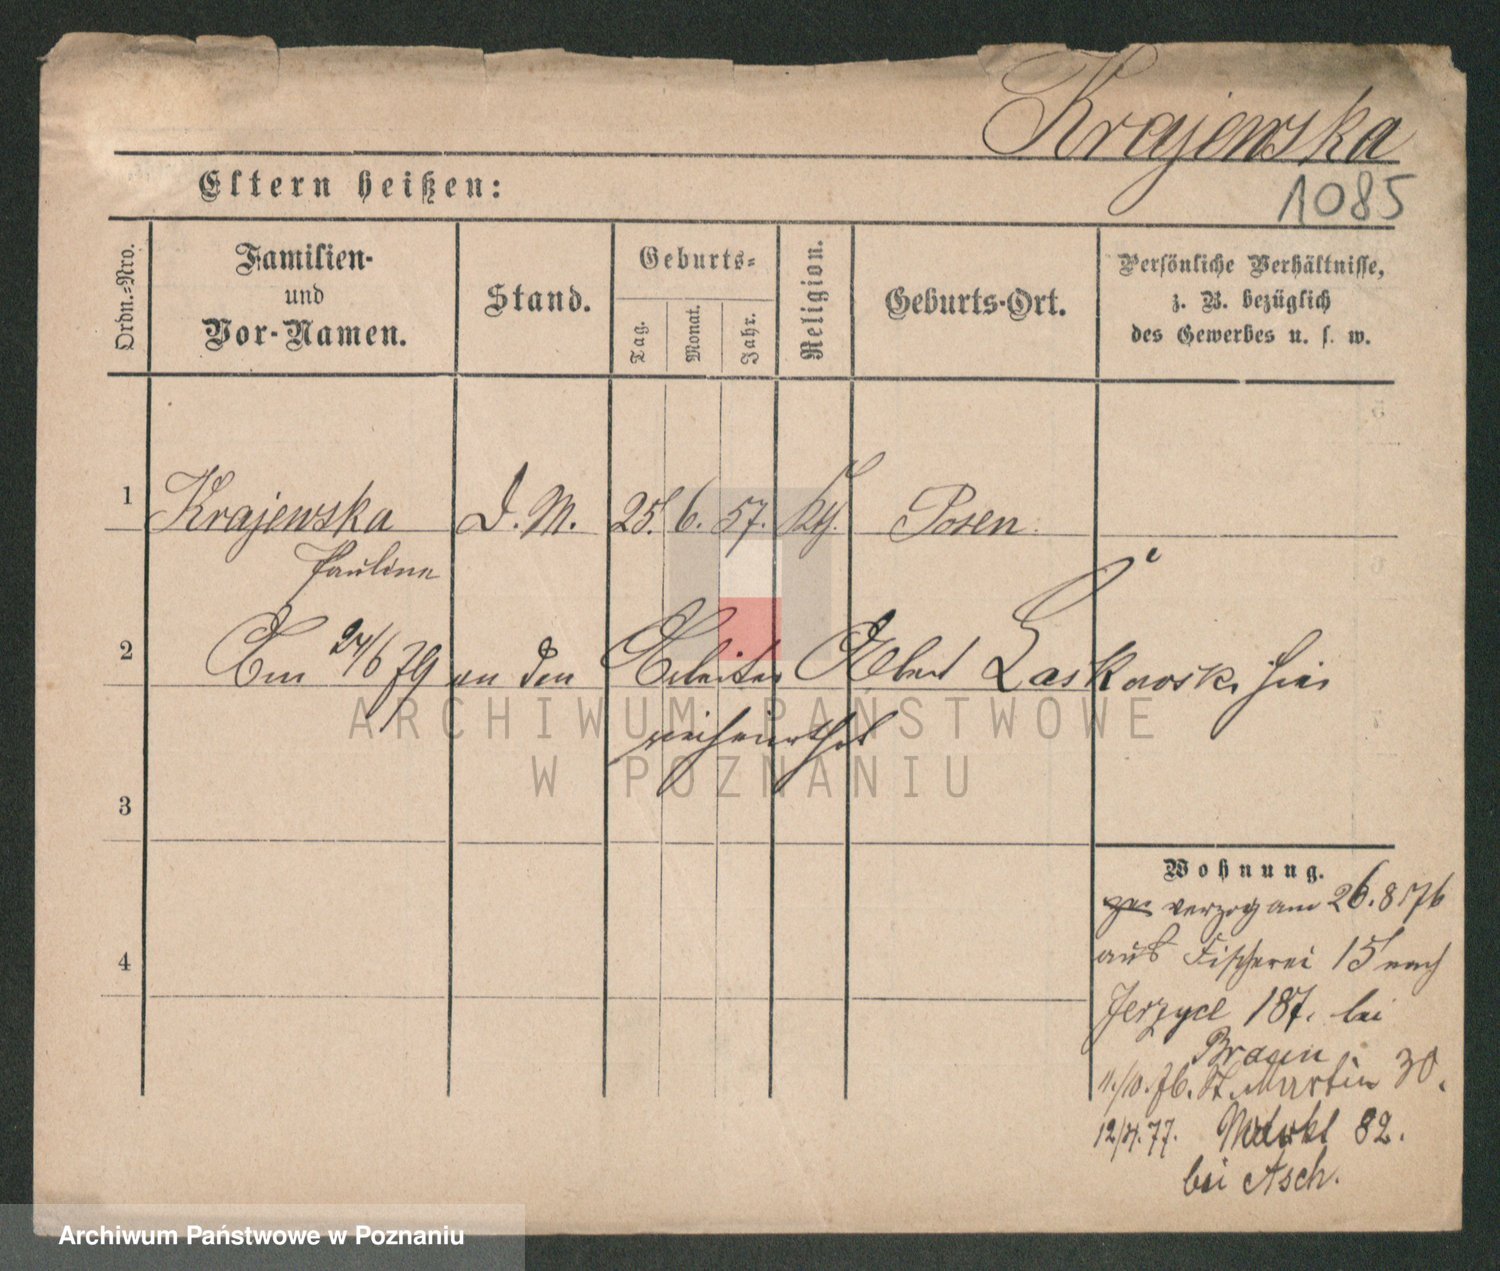 Krajewska
1085
Eltern heißen:
Ordn.-Nro.
Familien-
und
Vor-Namen.
Stand.
Geburts-
Tag.
Monat.
Jahr.
Religion.
Geburts-Ort.
Persönliche Verhältnisse,
z. B. bezüglich
des Gewerbes u. s. w.
1 Krajewska D. M. 25. 6. 57. Posen
Pauline
2 Am 24/6 79 an den Arbeiter Albert Laskowski hier
verheirathet
ARCHIWUM PAŃSTWOWE
W POZNANIU
3
4
Wohnung.
verzog am 26.8.76
aus Fischerei 15 nach
Jerzyce 187. bei
Braun
11./10. 76. St. Martin 30.
12/4.77. Markt 82.
bei Asch.
Archiwum Państwowe w Poznaniu